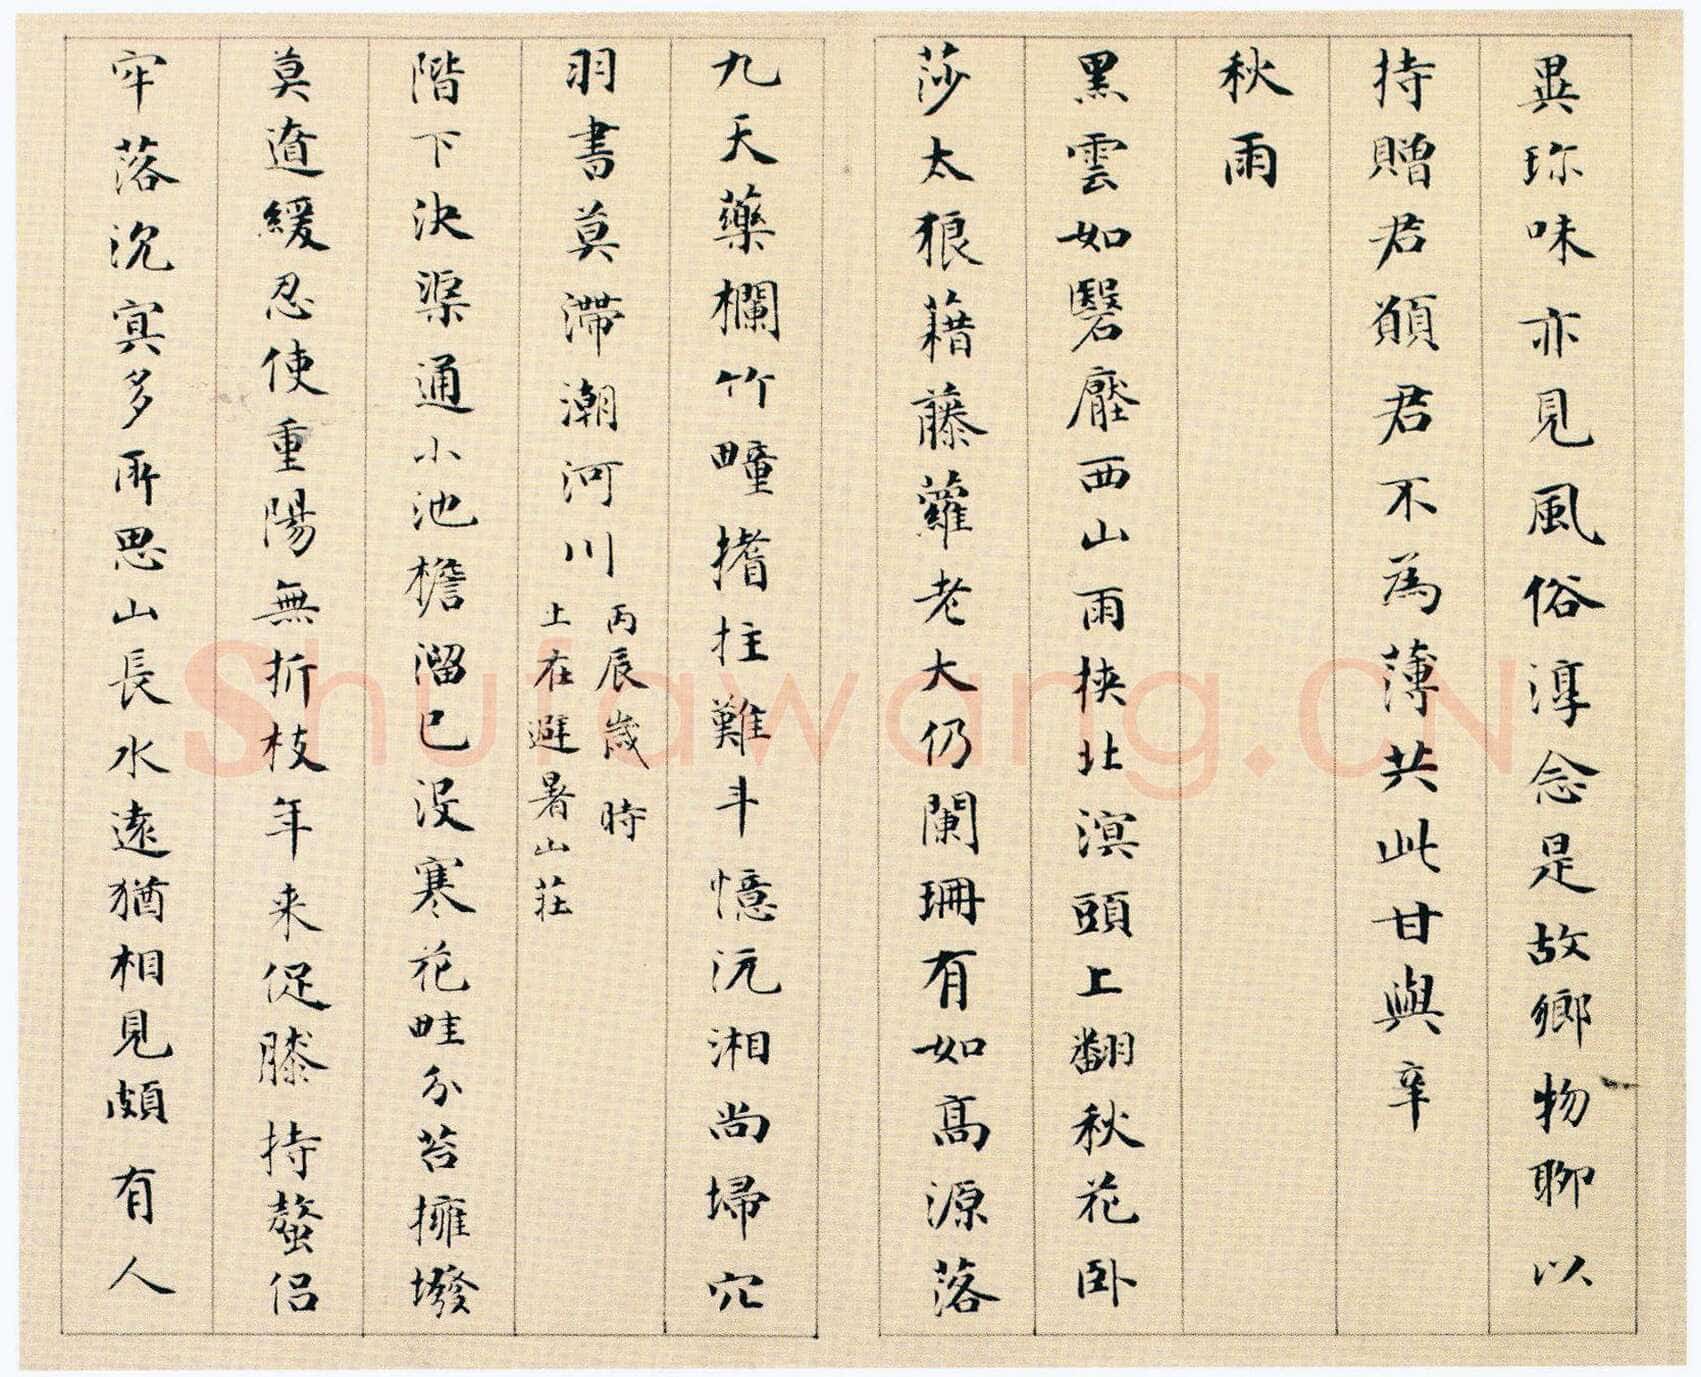 異珎味亦見風俗淳念是故鄉物聊以
持贈君願君不為薄共此甘與辛
秋雨
黑雲如鷖壓西山雨挾北溟頭上翻秋花卧
莎太狼藉藤蘿老大仍闌珊有如高源落
九天藥欄竹疃撦拄難斗憶沅湘尚埽穴
羽書莫滯潮河川
丙辰歲時
上在避暑山莊
階下決渠通小池檐溜已没寒花畦分苔擁墢
莫遣緩忍使重陽無折枝年来促膝持螯侣
牢落沉冥多所思山長水遠猶相見頗有人
Shufawang.CN